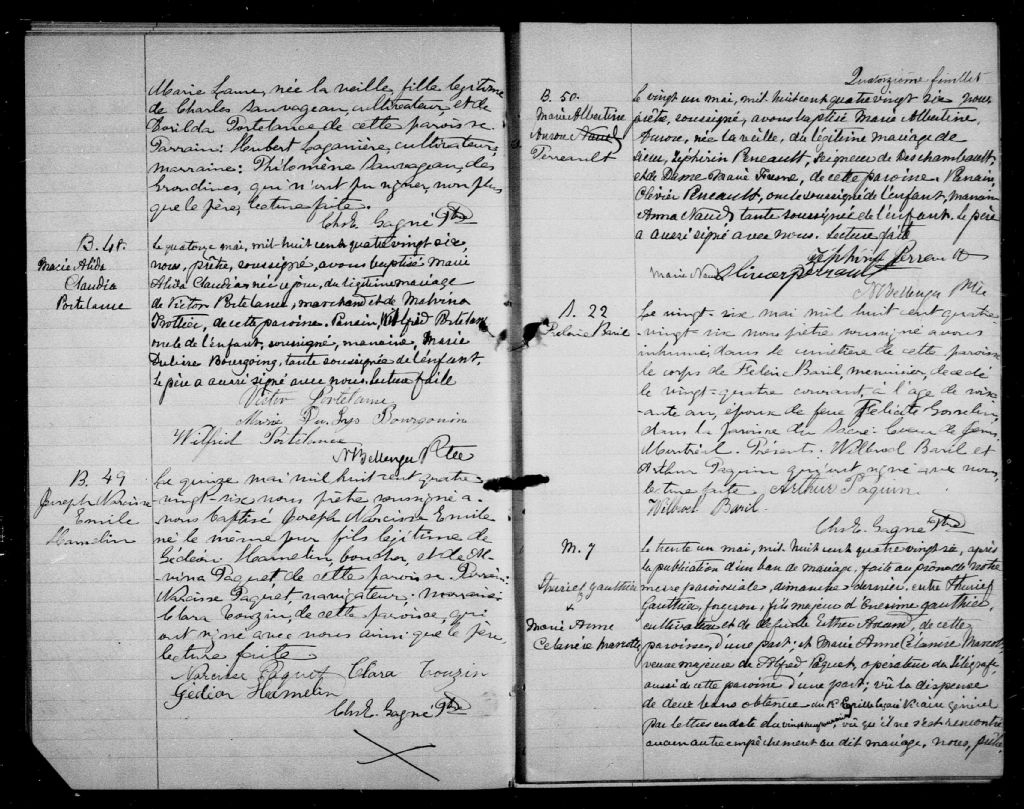 Marie Laure, née la veille, fille légitime
de Charles Sauvageau, cultivateur, et de
Portelance, de cette paroisse.
Parrain: Hubert cultivateur,
marraine: Philomène Sauvageau, des
Grondines, qui n'ont pu signer, non plus
que le père, lecture faite.
Chs E. Gagné Ptre
B. 48.
Marie Alida
Claudia
Portelance
Le quatorze mai, mil-huit cent quatre vingt six,
nous, prêtre, soussigné, avons baptisé Marie
Alida Claudia née ce jour, du légitime mariage
de Victor Portelance, marchand et de Malvina
Trottier, de cette paroisse. Parrain, Wilfred Portelance
oncle de l'enfant, soussigné, marraine, Marie
Bourgoing, tante soussignée de l'enfant.
Le père a aussi signé avec nous. Lecture faite
Victor Portelance
Marie Bourgouin
Wilfrid Portelance
N Bellenger Ptre
B. 49
Joseph Narcisse
Emile
Hamelin
Le quinze mai mil huit cent quatre-
vingt-six nous prêtre soussigné a-
vons baptisé Joseph Narcisse Emile
né le même jour fils légitime de
Gédéon Hamelin, boucher, et de Al-
vina Paquet de cette paroisse. Parrain:
Narcisse Paquet, navigateur: marraine:
Clara Touzin, de cette paroisse, qui
ont signé avec nous ainsi que le père,
lecture faite
Narcisse Paquet Clara Touzin
Gédéon Hamelin
Chs E. Gagné Ptre
Quatorzième feuillet
B. 50.
Marie Albertine
Aurore
Perreault
Le vingt un mai, mil huit cent quatre vingt six nous
prêtre, soussigné, avons baptisé Marie Albertine,
Aurore, née la veille, du légitime mariage de
sieur, Zéphirin Perreault, Seigneur de Deschambault,
et de Dame Marie de cette paroisse. Parrain,
Olivier Perreault, oncle soussigné de l'enfant, marraine
Anna Naud, tante soussignée de l'enfant. Le père
a aussi signé avec nous. Lecture faite
Zéphirin Perreault
Marie Naud Olivier Perrault
N Bellenger Ptre
S. 22
Pelexe Baril
Le vingt-six mai mil huit cent quatre
vingt-six nous prêtre soussigné avons
inhumé, dans le cimetière de cette paroisse
le corps de Baril, menuisier, décédé
le vingt-quatre courant, à l'âge de
ante ans, époux de feue Félicité Gosselin,
dans la paroisse du Sacré-Coeur de Jésus
Montréal. Présents: Wilbrod Baril et
Arthur Paquin qui ont signé avec nous,
lecture faite. Arthur Paquin
Wilbrod Baril
Chs E. Gagné Ptre
M. 7
Gauthier
&
Marie Anne
Célanire Marcotte
Le trente un mai, mil huit cent quatre vingt six, après
la publication d'un ban de mariage, faite au prône de notre
messe paroissiale, dimanche dernier, entre
Gauthier, forgeron, fils majeur d'Onésime Gauthier,
cultivateur et de défunte Esther de cette
paroisse, d'une part; et Marie Anne Célanire Marcotte
veuve majeure de Alfred Paquet, opérateur du télégraphe
aussi de cette paroisse d'une part; vu la dispense
de deux bans obtenue de Mr Cyrille Légaré Vicaire général
par lettres en date du vu qu'il ne s'est rencontré
aucun autre empêchement au dit mariage, nous, prêtre,